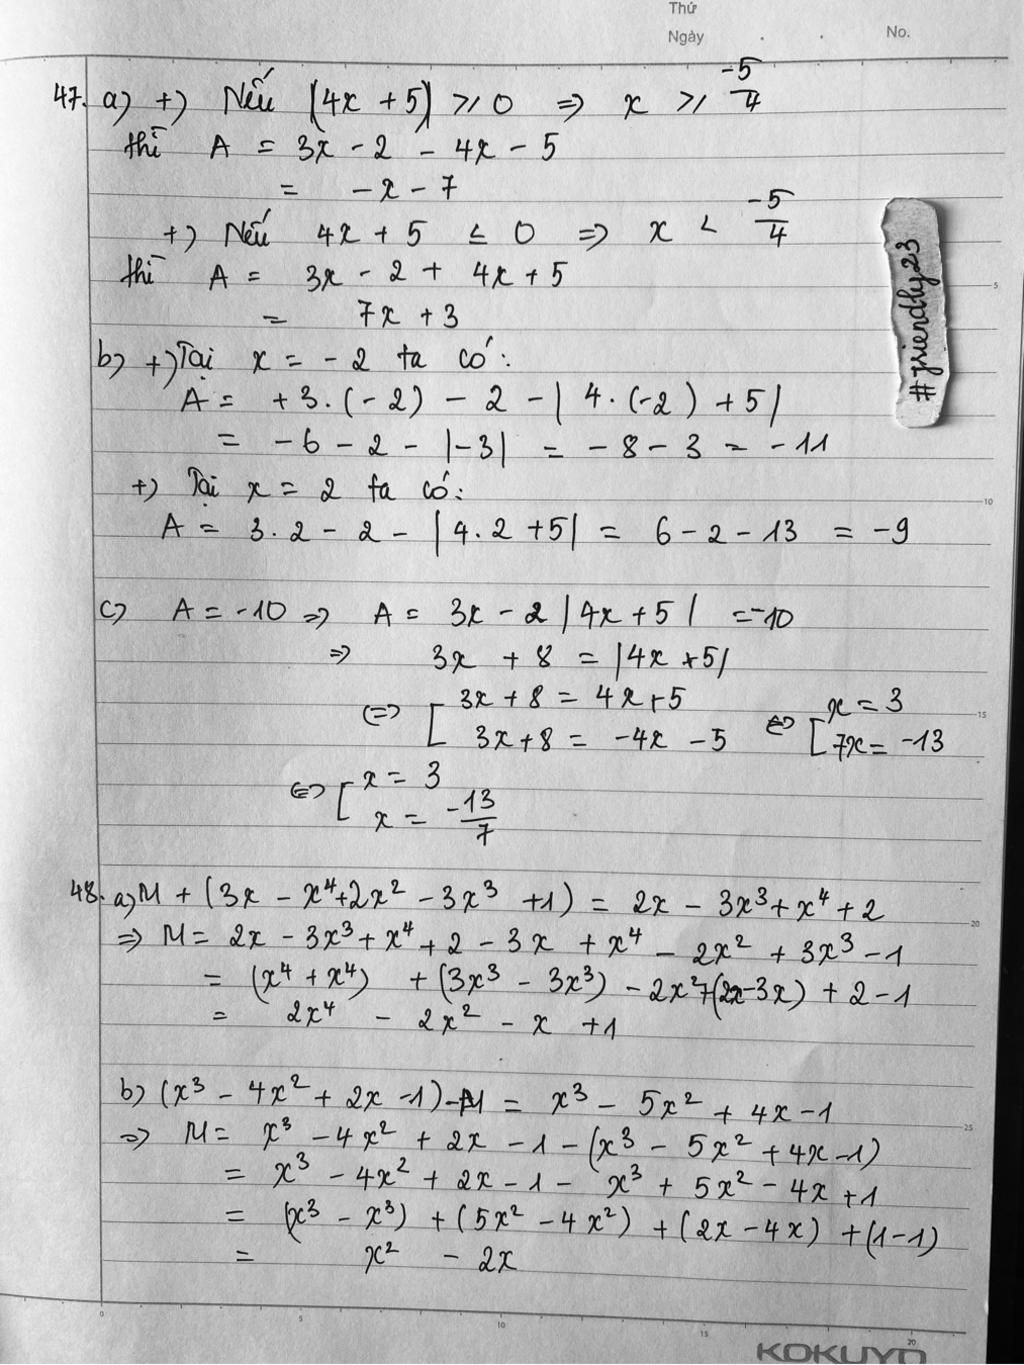 Thứ
Ngày . . No.
47. a) +) Nếu (4x + 5) ≥ 0 => x ≥ -5/4
thì A = 3x - 2 - 4x - 5
= -x - 7
+) Nếu 4x + 5 ≤ 0 => x < -5/4
thì A = 3x - 2 + 4x + 5
= 7x + 3
#friendly23
b) +) Tại x = -2 ta có:
A = +3.(-2) - 2 - |4.(-2) + 5|
= -6 - 2 - |-3| = -8 - 3 = -11
+) Tại x = 2 ta có:
A = 3.2 - 2 - |4.2 + 5| = 6 - 2 - 13 = -9
c) A = -10 => A = 3x - 2 |4x + 5| = -10
=> 3x + 8 = |4x + 5|
<=> [ 3x + 8 = 4x + 5 <=> [ x = 3
3x + 8 = -4x - 5 7x = -13
<=> [ x = 3
x = -13/7
48. a) M + (3x - x⁴ + 2x² - 3x³ + 1) = 2x - 3x³ + x⁴ + 2
=> M = 2x - 3x³ + x⁴ + 2 - 3x + x⁴ - 2x² + 3x³ - 1
= (x⁴ + x⁴) + (3x³ - 3x³) - 2x² + (2x - 3x) + 2 - 1
= 2x⁴ - 2x² - x + 1
b) (x³ - 4x² + 2x - 1) - M = x³ - 5x² + 4x - 1
=> M = x³ - 4x² + 2x - 1 - (x³ - 5x² + 4x - 1)
= x³ - 4x² + 2x - 1 - x³ + 5x² - 4x + 1
= (x³ - x³) + (5x² - 4x²) + (2x - 4x) + (1 - 1)
= x² - 2x
0 5 10 15 20
KOKUYO